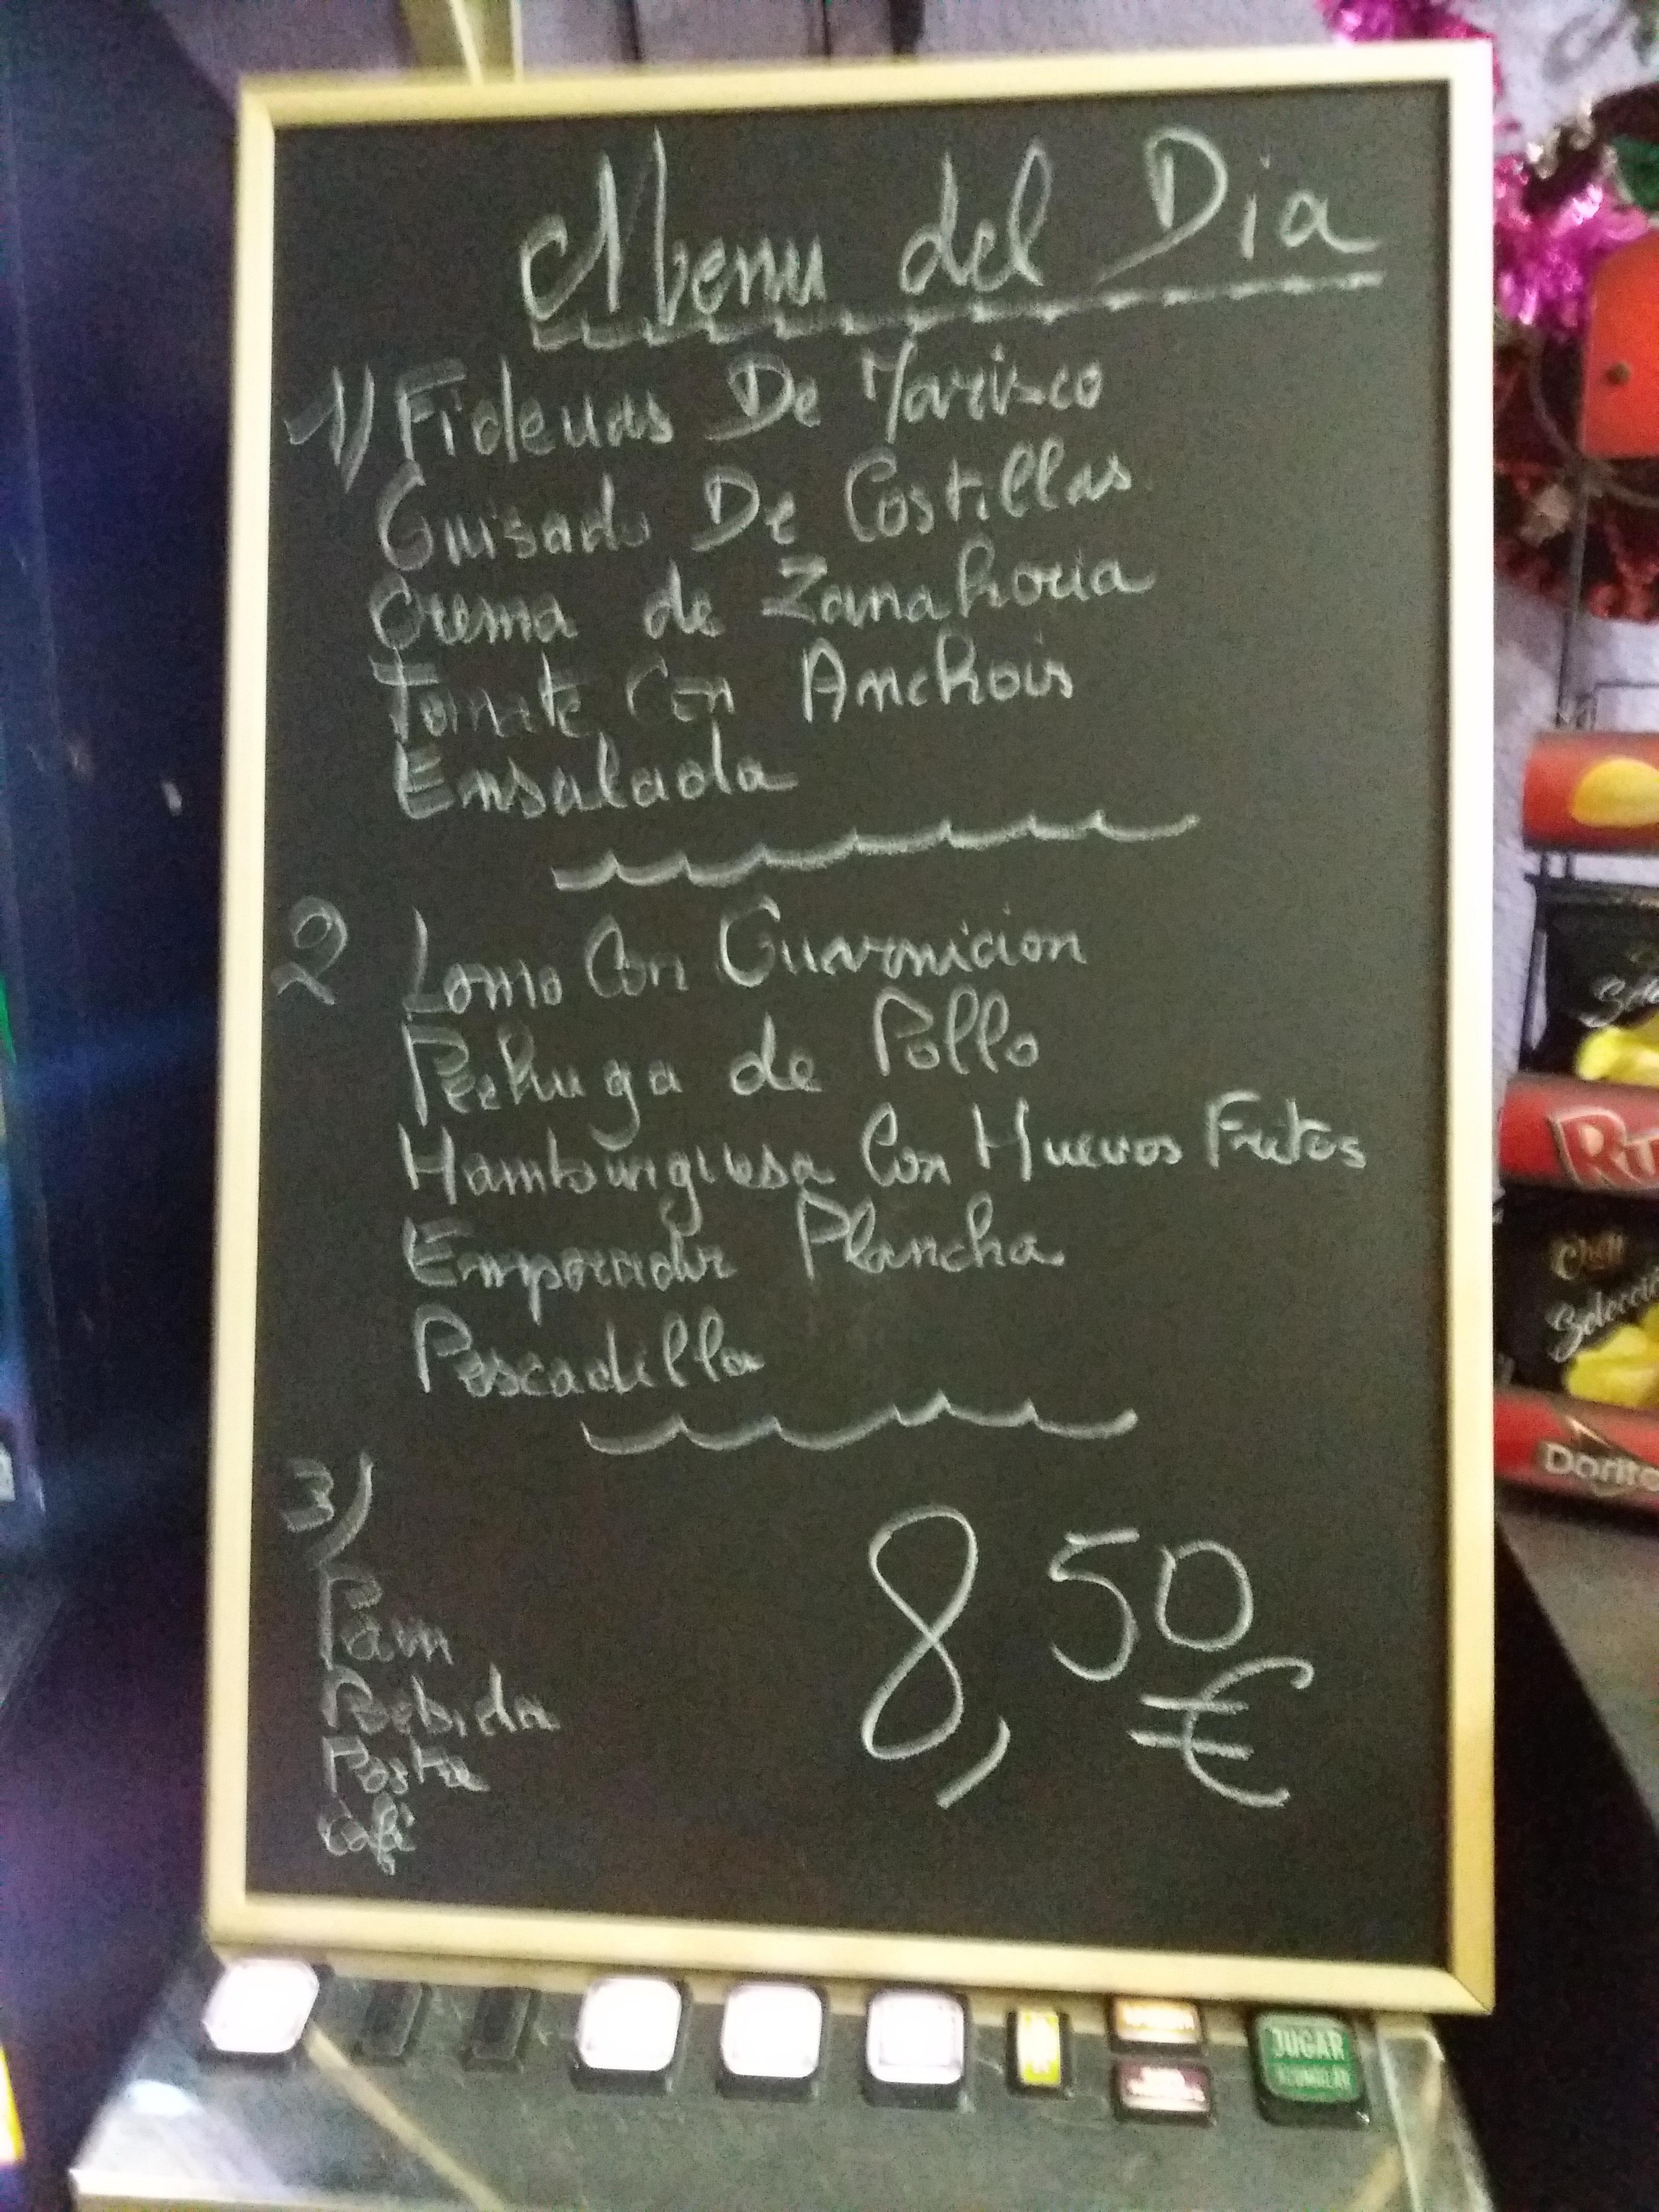 Menu del Dia
1) Fideuas De Marisco
Guisado De Costillas
Crema de Zanahoria
Tomate Con Anchois
Ensalada
2 Lomo Con Guarnicion
Pechuga de Pollo
Hamburguesa Con Huevos Fritos
Emperador Plancha
Pescadilla
3)
Pam
Bebida
Postre
Café
8,50
€
JUGAR
Dorito